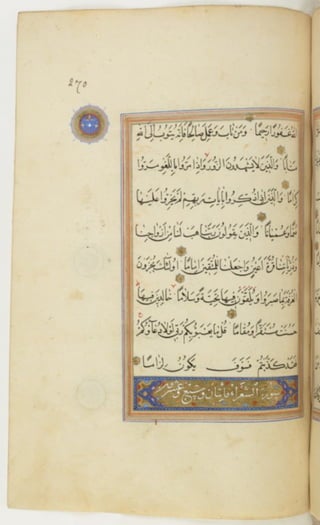 270
الله غفورا رحيما ومن تاب وعمل صالحا فانه يتوب الى الله
متابا والذين لا يشهدون الزور واذا مروا باللغو مروا
كراما والذين اذا ذكروا بايات ربهم لم يخروا عليها
صما وعميانا والذين يقولون ربنا هب لنا من ازواجنا
وذرياتنا قرة اعين واجعلنا للمتقين اماما اولئك يجزون
الغرفة بما صبروا ويلقون فيها تحية وسلاما خالدين فيها
حسنت مستقرا ومقاما قل ما يعبؤا بكم ربي لولا دعاؤكم
فقد كذبتم فسوف يكون لزاما
سورة الشعراء مايتان وسبع وعشرون